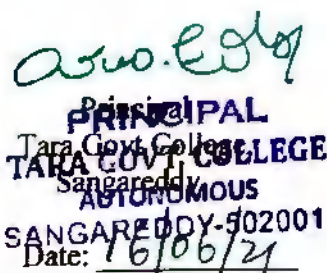 Principal
PRINCIPAL
Tara Govt College
TARA GOVT. COLLEGE
Sangareddy
AUTONOMOUS
SANGAREDDY-502001
Date: 16/06/21